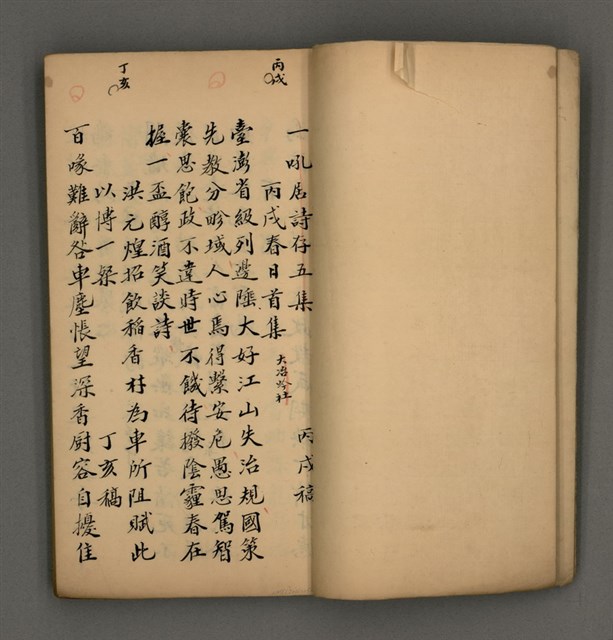 丙戌
一吼居詩存五集 丙戌稿
丙戌春日首集 大冶吟社
臺澎省級列邊陲大好江山失治規國策
先教分畛域人心焉得繫安危愚思駕智
裳思飽政不違時世不饑待撥陰霾春在
握一盃醇酒笑談詩
丁亥
洪元煌招飲稻香村為車所阻賦此
以博一粲 丁亥稿
百喙難辭咎車塵悵望深香厨容自擾佳